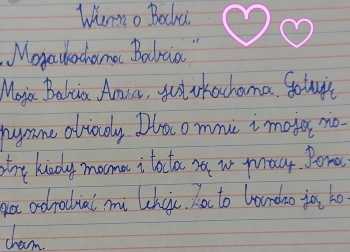 Wiersz o Babci
„Moja ukochana Babcia"
Moja Babcia Ania, jest ukochana. Gotuje
pyszne obiady. Dba o mnie i moją sio-
strę kiedy mama i tata są w pracy. Poma-
ga odrabiać mi lekcje. Za to bardzo ją ko-
cham.